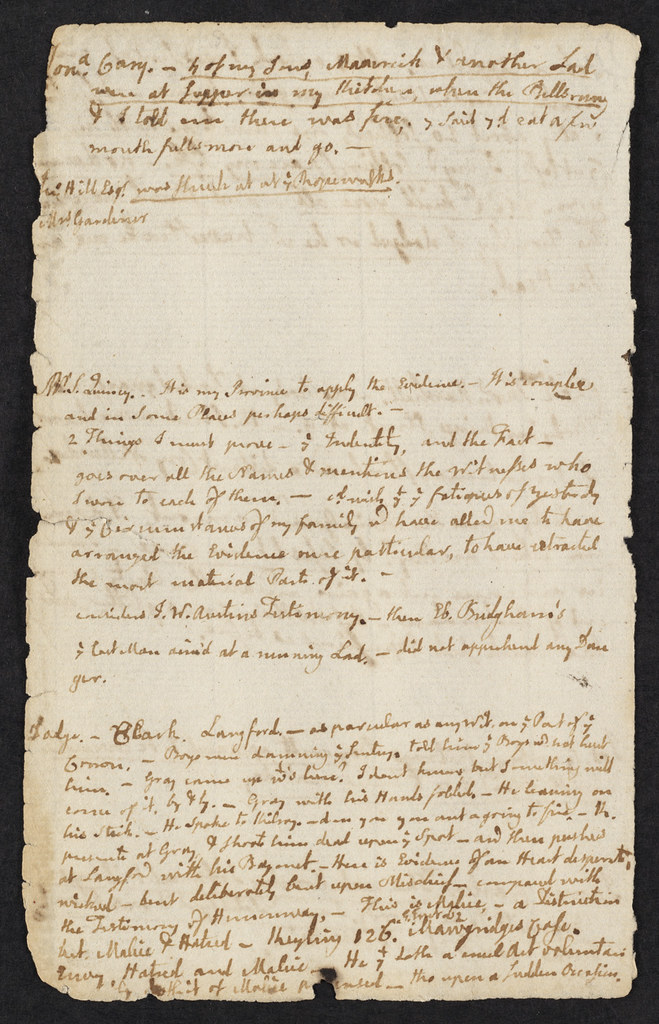 Jonª. Cary. – 4 of my Sons, Maverick & another Lad
were at Supper in my Kitchen, when the Bells rung
& I told em there was fire, y said yd eat a few
mouth fulls more and go. –
Hill Esqr. was struck at at ye Ropewalks.
Mrs Gardiner
Mr. S. Quincy. . It is my Province to apply the Evidence. – It is complex
and in Some Places perhaps difficult. –
2 Things I must prove – ye Identity, and the Fact –
goes over all the Names & mentions the Witnesses who
swore to each of them, – wish yt ye fatigues of yesterdy
& ye Circumstances of my family wd have allowd me to have
arranged the Evidence more particular, to have extracted
the most material Parts of it. –
considers J. W. Austins Testimony. – then Eb. Bridghams
ye last Man aimd at a running Lad. – did not apprehend any Dan
ger.
Dodge. – Clark. Langford. – as particular as any Wit. on ye Part of ye
Crown. – Boys were damning ye Sentry. told him ye Boys wd not hurt
him. – Gray came up wd his here. I dont know, but something will
come of it, by & by. – Gray with his Hands folded – He leaning on
his Stick. – He spoke to Kilroy. – dam you you ant a going to fire. –
presents at Gray, & shoots him dead upon ye Spot – and then pushes
at Langford with his Bayonet. – Here is Evidence of an Heart desperately
wicked – bent deliberately bent upon Mischief – compared with
the Testimony of Hemmenway. – This is Malice, – a Distinction
bet. Malice & Hatred – Keyling 126. Mawgridges Case.
Envy Hatred and Malice – He yt doth a cruel Act voluntari
ly doth it of Malice – tho upon a sudden Occasion.